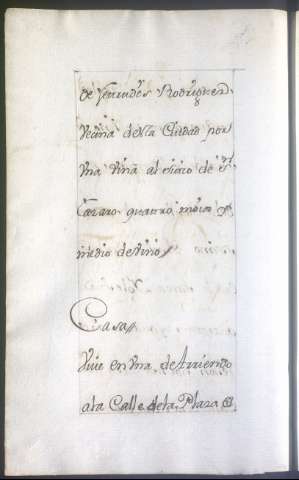 de Rodriguez
Vecina de esta Ciudad por
Vna Viña al sitio de Sn
Lazaro quattro moios y
medio de vino
Casa
Viue en vna de Arriendo
a la Calle de la Plaza